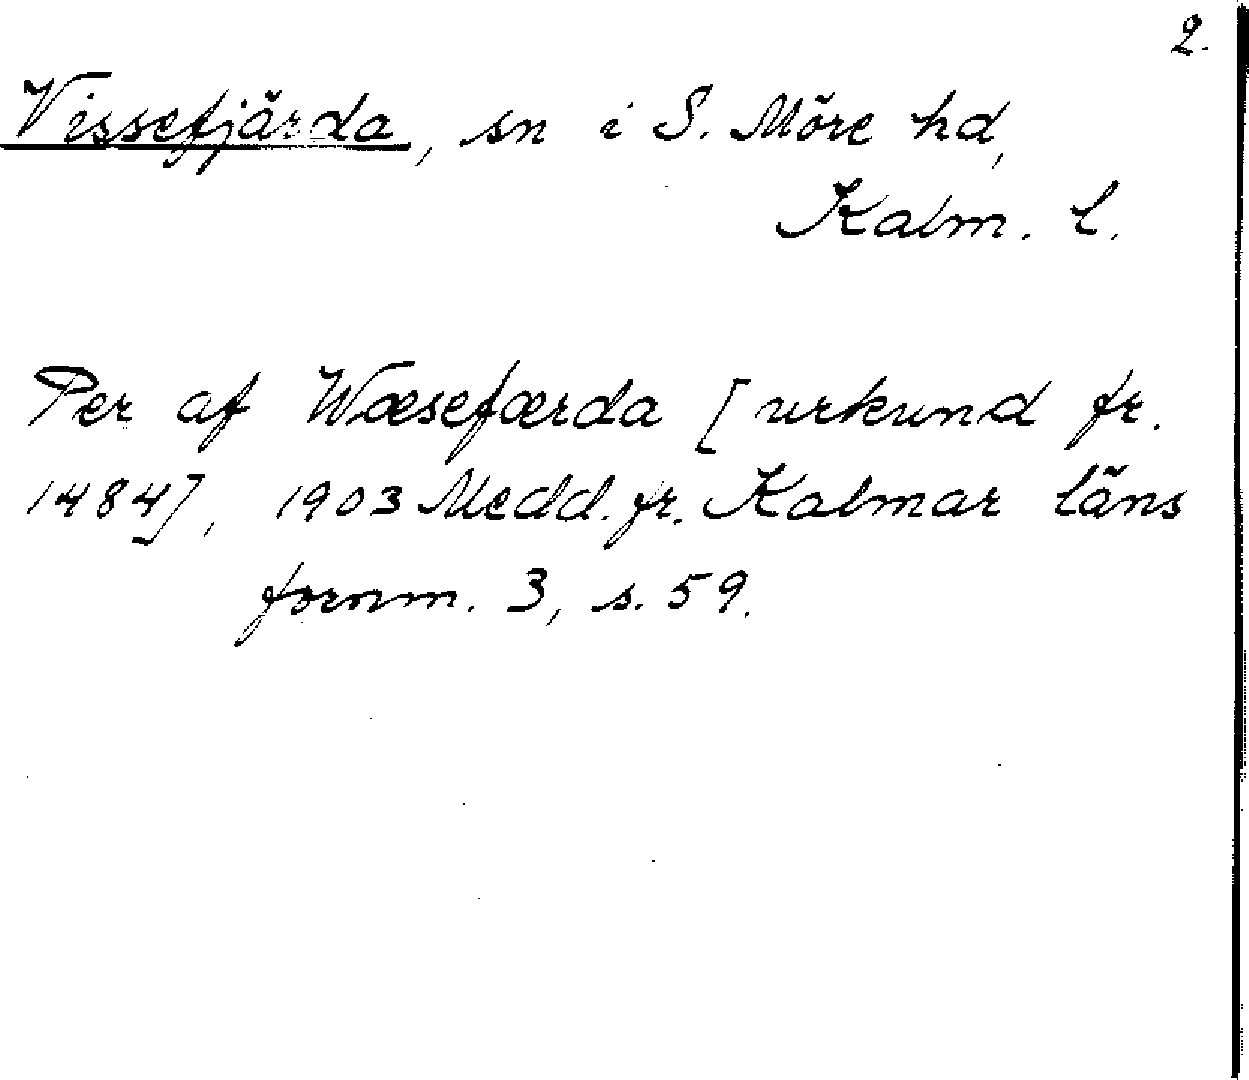 2.
Vissefjärda, sn i S. Möre hd,
Kalm. l.
Per af Wæsefærda [urkund fr.
1484], 1903 Medd. fr. Kalmar läns
fornm. 3, s. 59.